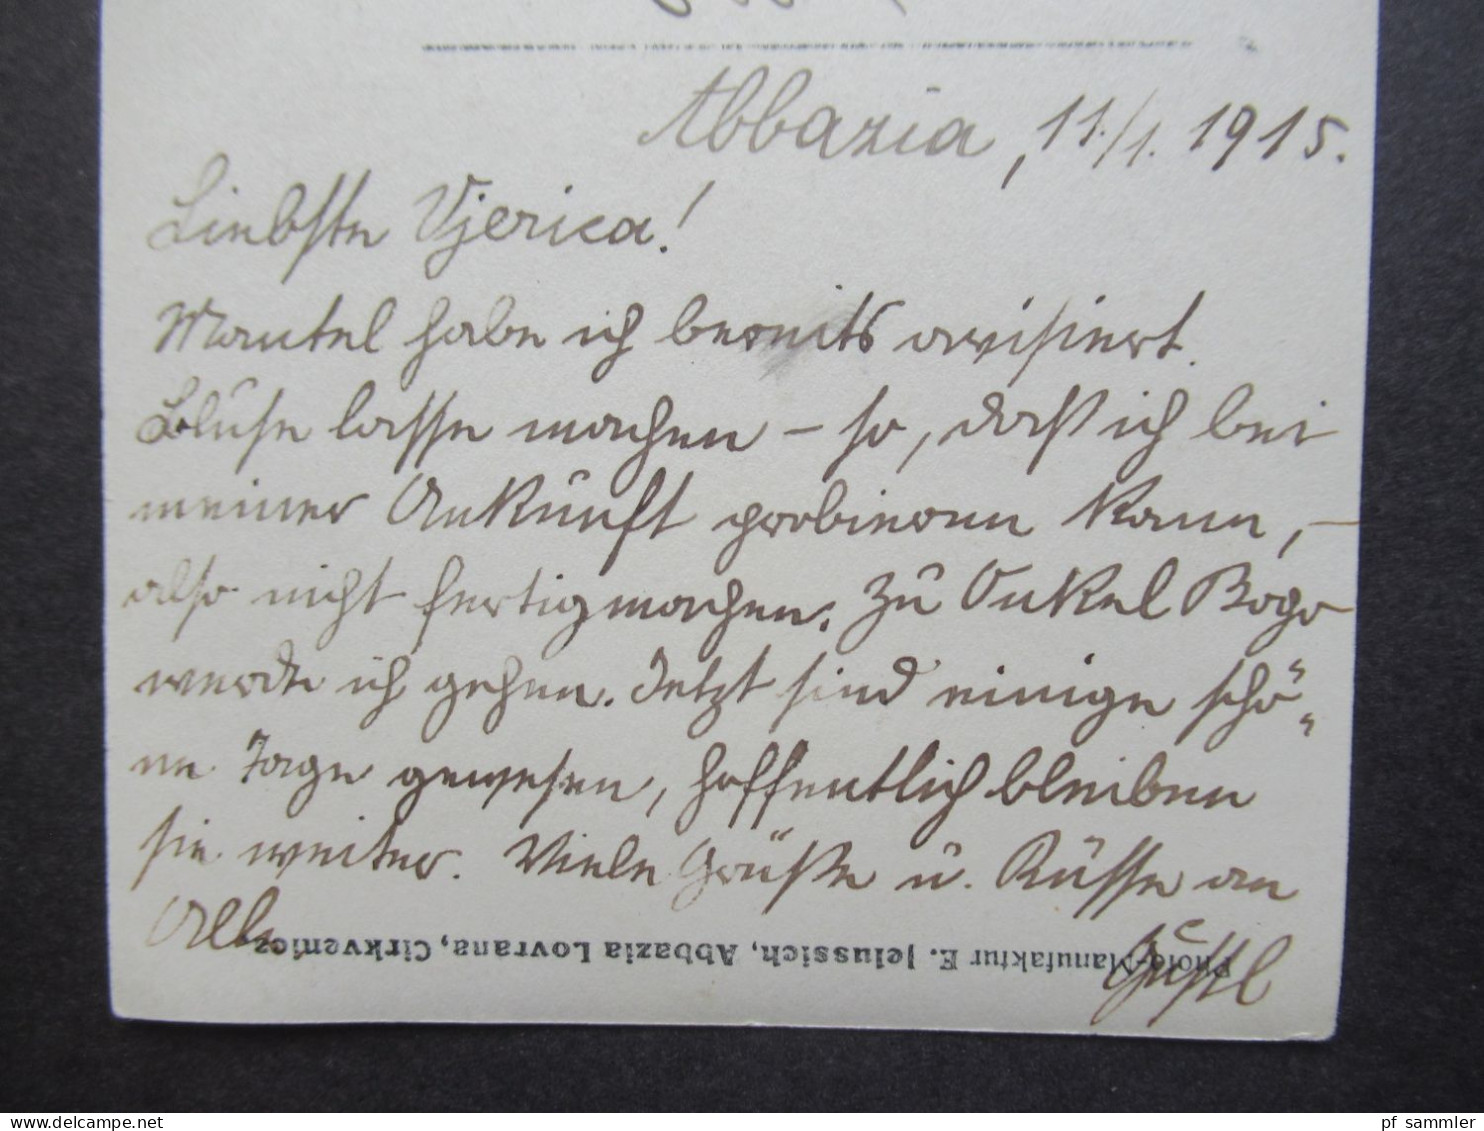 Abbazia, 11./1. 1915.
Liebste Vjerica!
Mantel habe ich bereits avisiert.
Bluse lasse machen – so, daß ich bei
meiner Ankunft probieren kann, –
also nicht fertigmachen. Zu Onkel Bogo
werde ich gehen. Jetzt sind einige schö„
ne Tage gewesen, hoffentlich bleiben
sie weiter. Viele Grüße u. Küsse an
Alle
Gustl
Photo-Manufaktur E. Jelussich, Abbazia Lovrana, Cirkvenicz
© www.delcampe.net
pf_sammler